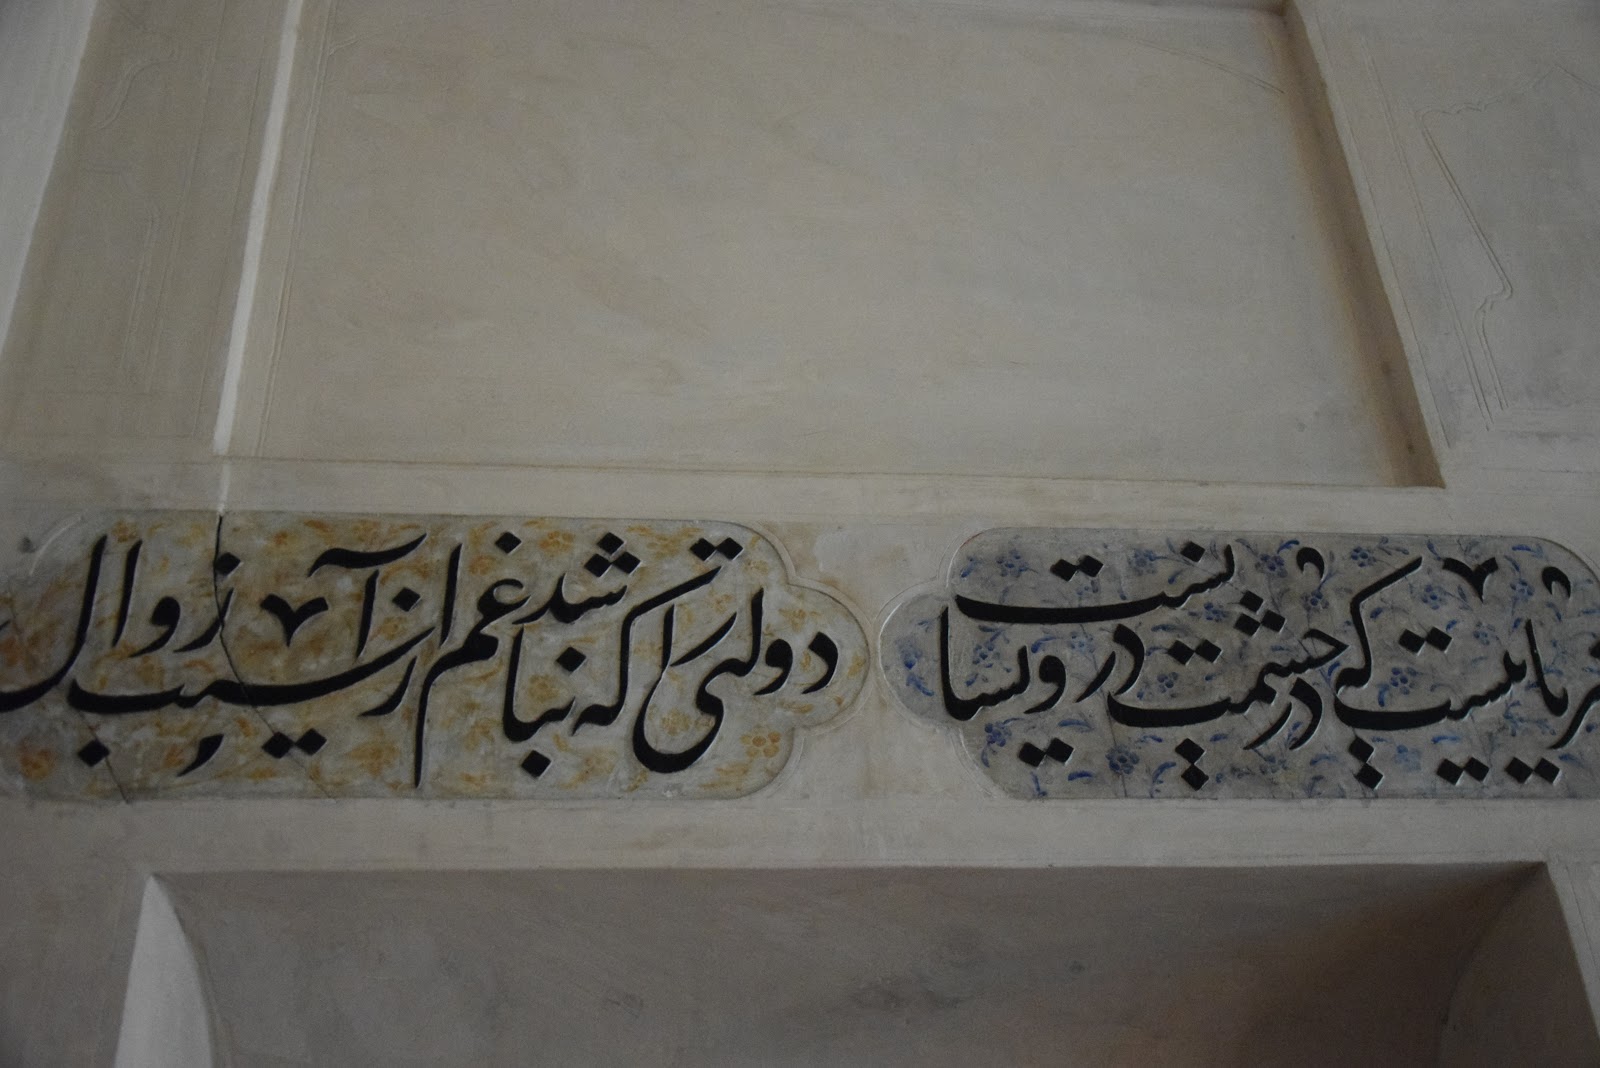 ریاییست که در حشمت درویشانست
دولتی را که نباشد غم از آسیب زوال